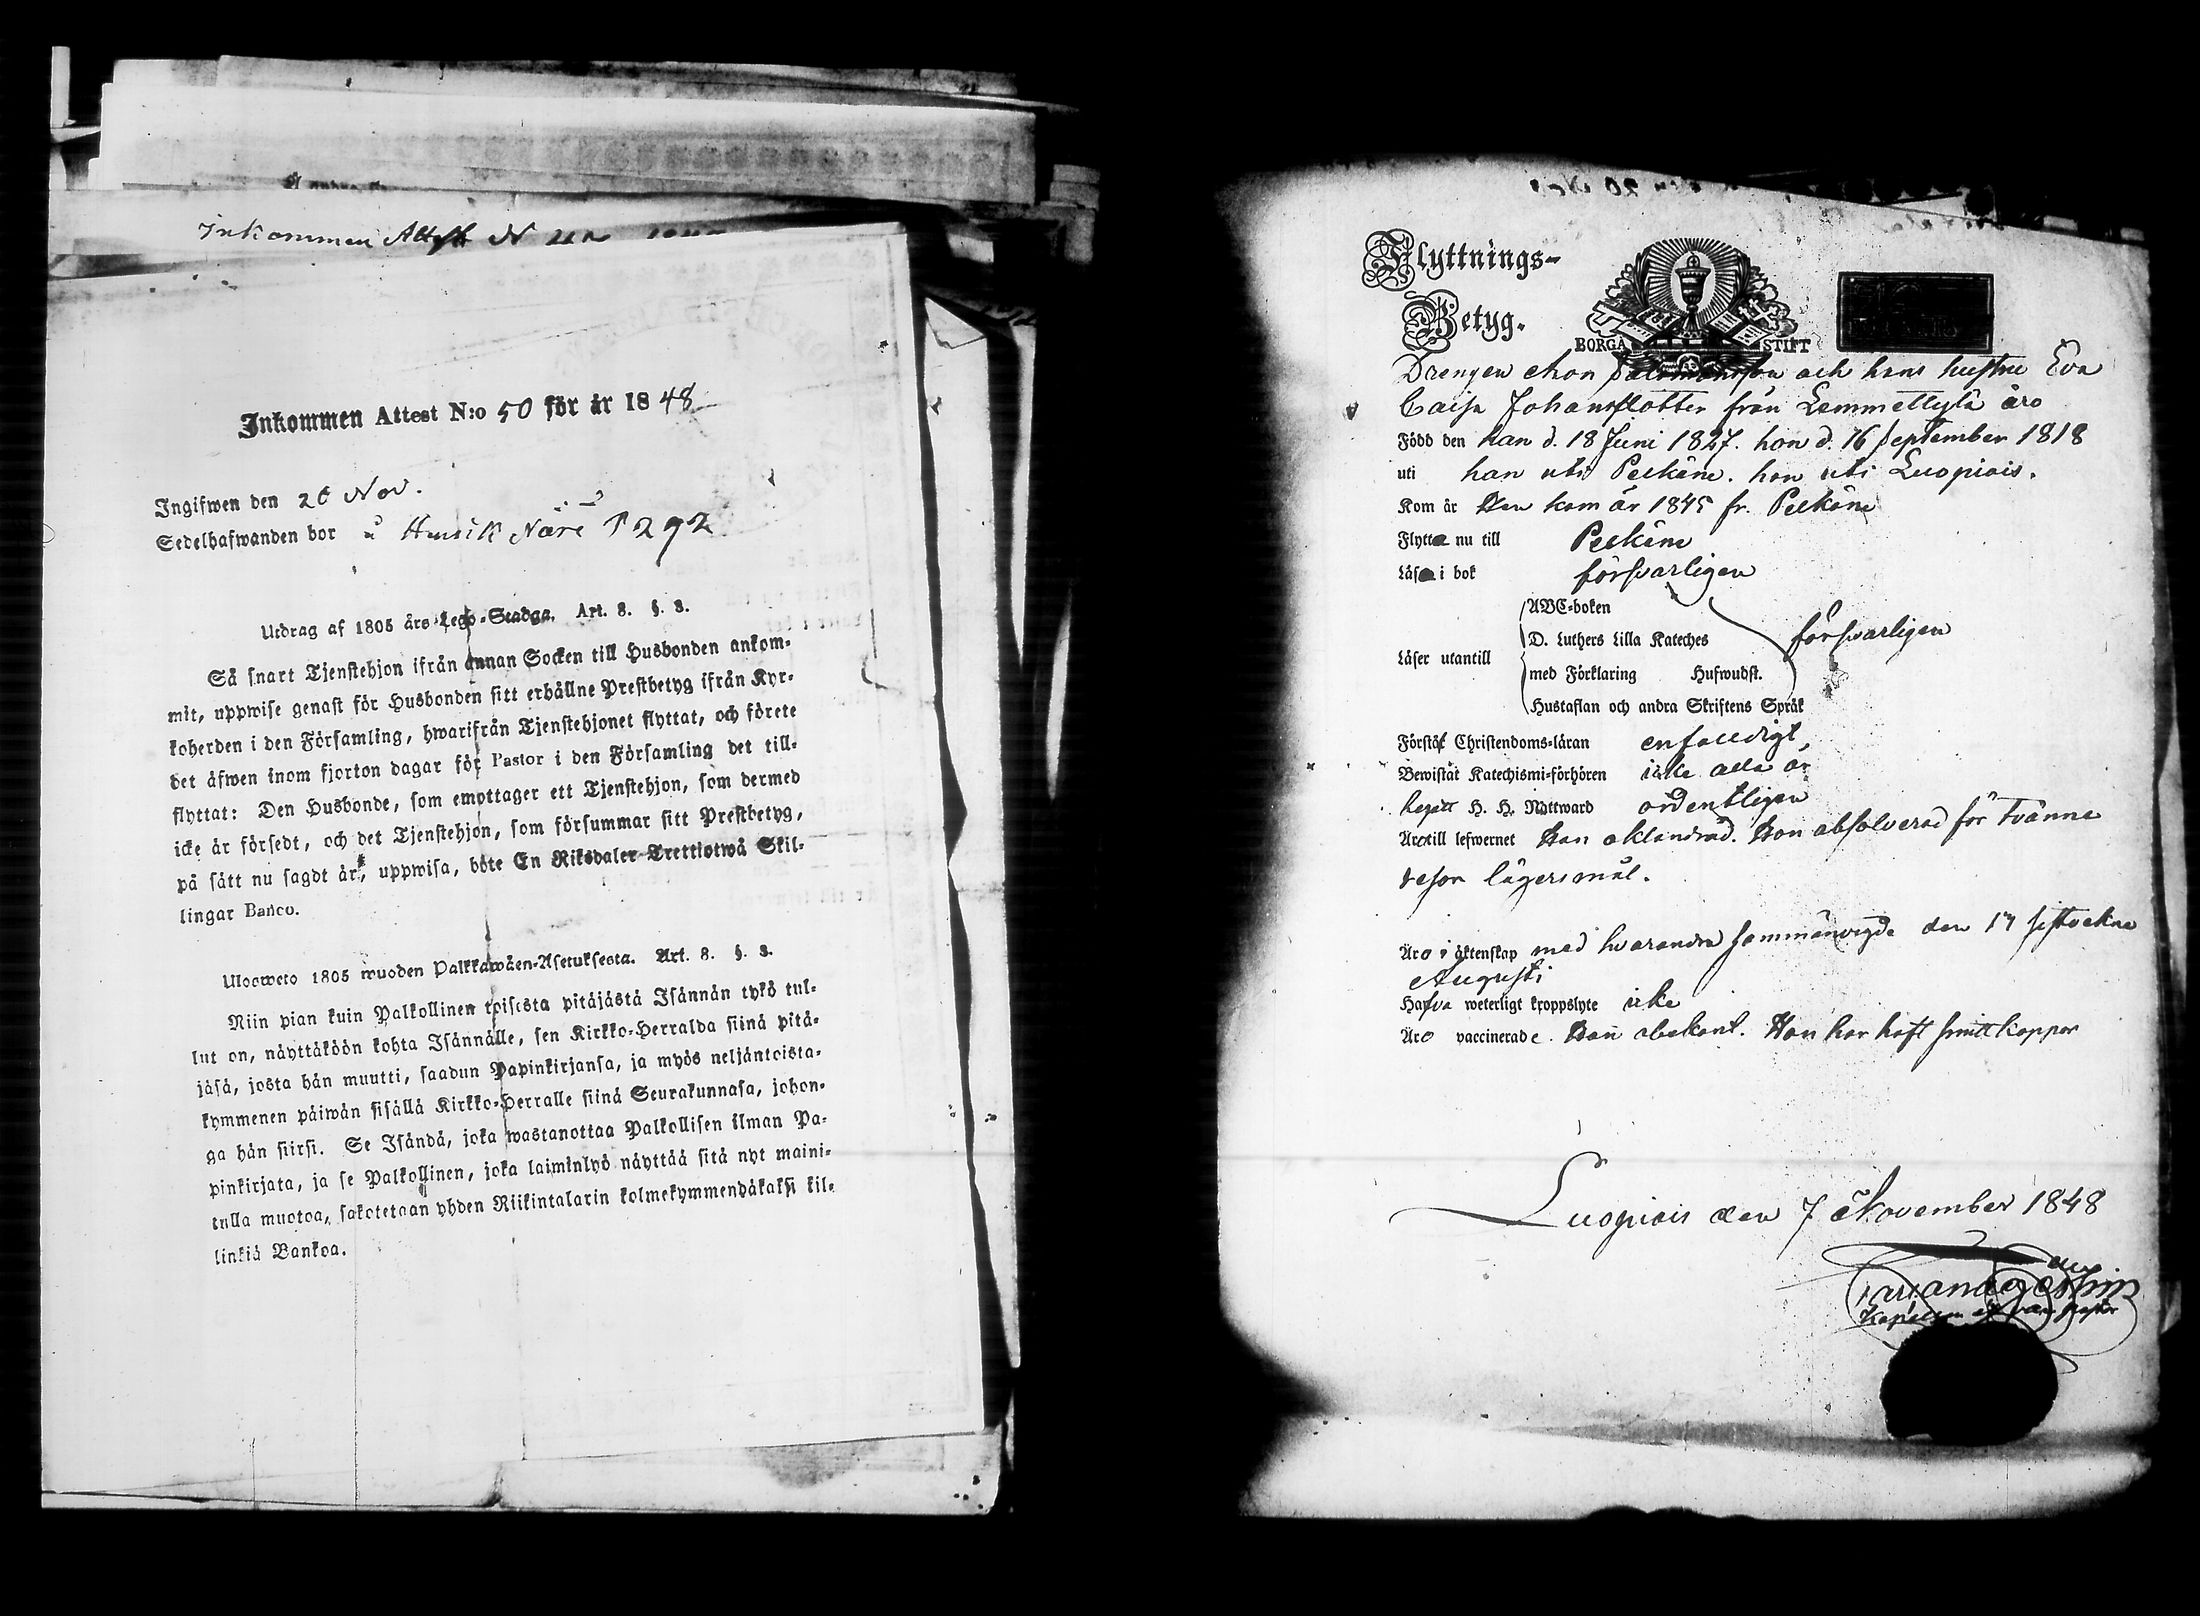 Inkommen Attest N
Inkommen Attest N:o 50 för år 1848
Ingifwen den 20 Nov.
Sedelhafwanden bor å Henrik Näri P 292
Utdrag af 1805 års Lego-Stadga. Art. 8. §. 3.
Så snart Tjenstehjon ifrån annan Socken till Husbonden ankom-
mit, uppwise genast för Husbonden sitt erhållne Prestbetyg ifrån Kyr-
koherden i den Församling, hwarifrån Tjenstehjonet flyttat, och förete
det äfwen inom fjorton dagar för Pastor i den Församling det till-
flyttat: Den Husbonde, som emottager ett Tjenstehjon, som dermed
icke är försedt, och det Tjenstehjon, som försummar sitt Prestbetyg,
på sätt nu sagdt är, uppwisa, böte En Riksdaler Trettiotwå Skil-
lingar Banco.
Ulosweto 1805 wuoden Palkkawäen-Asetuksesta. Art. 8. §. 3.
Niin pian kuin Palkollinen toisesta pitäjästä Isännän tykö tul-
lut on, näyttäköön kohta Isännälle, sen Kirkko-Herralda siinä pitä-
jäsä, josta hän muutti, saadun Papinkirjansa, ja myös neljäntoista-
kymmenen päiwän sisällä Kirkko-Herralle siinä Seurakunnasa, johon-
ga hän siirsi. Se Isändä, joka wastanottaa Palkollisen ilman Pa-
pinkirjata, ja se Palkollinen, joka laiminlyö näyttää sitä nyt maini-
tulla muotoa, sakotetaan yhden Riikintalarin kolmekymmendäkaksi kil-
linkiä Bankoa.
Flyttnings-
Betyg.
BORGÅ STIFT
Drengen Salomonsson och hans hustru Eva
Caisa Johansdotter från Lemmettylä äro
Född den han d. 18 Juni 1827. hon d. 16 September 1818
uti han uti Pelkäne. hon uti Luopiois.
Kom år Han kom år 1845 fr. Pelkäne
Flytta nu till Pelkäne
Läsa i bok försvarligen
Läser utantill
ABC-boken
D. Luthers Lilla Kateches försvarligen
med Förklaring Hufwudst.
Hustaflan och andra Skriftens Språk
Förstå Christendoms-läran enfaldigt
Bewistat Katechismi-förhören icke alla år
Begått H. H. Nattward ordentligen
Äro till lefwernet Han oklandrad. Hon absolverad för tvänne
resor lägersmål.
Äro i äktenskap med hvarandra sammanvigde den 17 sistvekne
Augusti
Hafva weterligt kroppslyte icke
Äro vaccinerade. Han obekant. Hon har haft smittkoppor
Luopiois den 7 November 1848